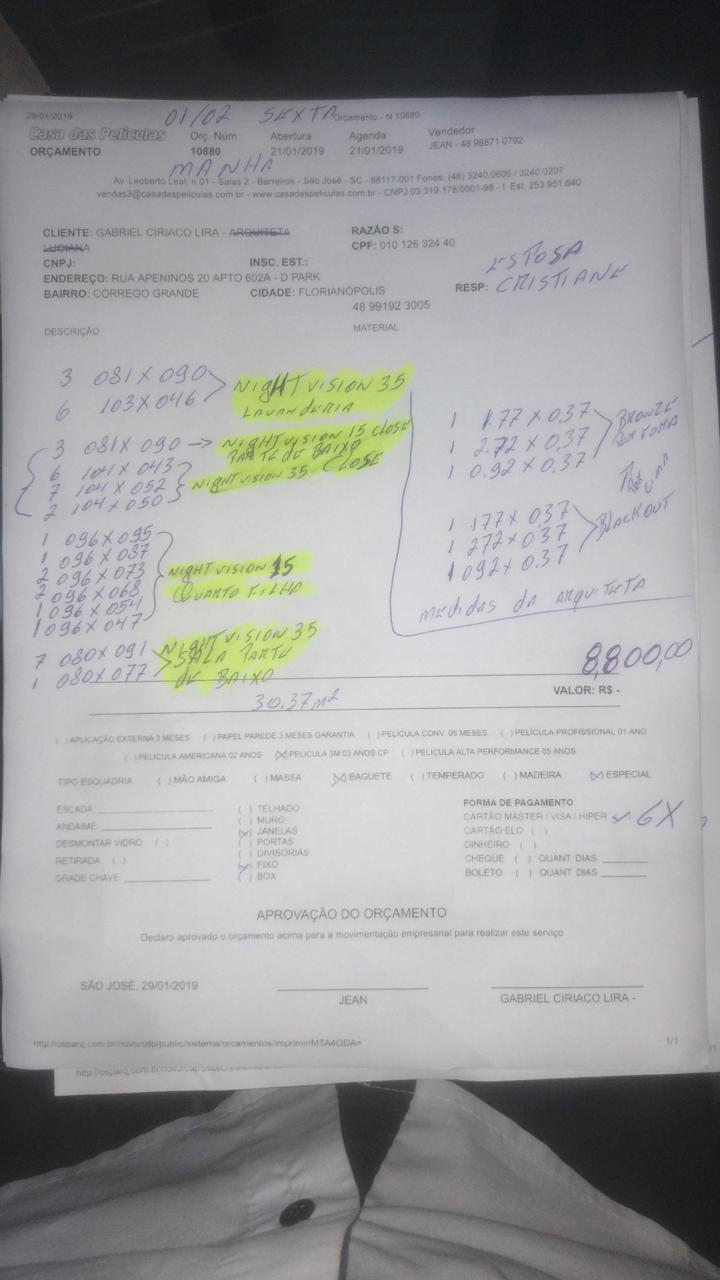 29/01/2019
01/02 SEXTA
Orçamento - N 10880
Casa das Películas
ORÇAMENTO
Orç. Núm
10880
Abertura
21/01/2019
Agenda
21/01/2019
Vendedor
JEAN - 48 98871 0792
MANHA
Av. Leoberto Leal, n 01 - Salas 2 - Barreiros - São José - SC - 88117-001 Fones: (48) 3240.0605 / 3240.0207
vendas3@casadaspeliculas.com.br - www.casadaspeliculas.com.br - CNPJ 03.319.178/0001-98 - I. Est. 253.951.640
CLIENTE: GABRIEL CIRIACO LIRA - ARQUITETA
LUCIANA
RAZÃO S:
CNPJ:
INSC. EST.:
CPF: 010 126 324 40
ENDEREÇO: RUA APENINOS 20 APTO 602A - D PARK
BAIRRO: CORREGO GRANDE
CIDADE: FLORIANÓPOLIS
RESP:
ESPOSA
CRISTIANE
48 99192 3005
DESCRIÇÃO
MATERIAL
3 081 X 090
6 103 X 046
NIGHT VISION 35
LAVANDERIA
3 081 X 090 → NIGHT VISION 15 CLOSE
PARTE DE BAIXO
6 104 X 043
7 104 X 052
2 104 X 050
NIGHT VISION 35 CLOSE
1 096 X 095
1 096 X 087
2 096 X 073
2 096 X 068
1 096 X 054
1 096 X 047
NIGHT VISION 15
QUARTO FILHO
7 080 X 091
1 080 X 077
NIGHT VISION 35
SALA PARTE
DE BAIXO
1 1.77 X 0.37
1 2.72 X 0.37
1 0.92 X 0.37
BRONZE
POR FORA
1 177 X 037
1 272 X 0.37
1 092 X 0.37
BLACKOUT
MEDIDAS DA ARQUITETA
8,800,00
30.37 m²
VALOR: R$ -
( ) APLICAÇÃO EXTERNA 3 MESES ( ) PAPEL PAREDE 3 MESES GARANTIA ( ) PELICULA CONV. 06 MESES ( ) PELÍCULA PROFISSIONAL 01 ANO
( ) PELICULA AMERICANA 02 ANOS (X) PELICULA 3M 03 ANOS CP ( ) PELICULA ALTA PERFORMANCE 05 ANOS
TIPO ESQUADRIA ( ) MÃO AMIGA ( ) MASSA (X) BAGUETE ( ) TEMPERADO ( ) MADEIRA (X) ESPECIAL
ESCADA:
ANDAIME:
DESMONTAR VIDRO: ( )
RETIRADA: ( )
GRADE CHAVE:
( ) TELHADO
( ) MURO
(X) JANELAS
( ) PORTAS
( ) DIVISÓRIAS
(X) FIXO
( ) BOX
FORMA DE PAGAMENTO
CARTÃO MASTER / VISA / HIPER (X) 6X
CARTÃO ELO ( )
DINHEIRO ( )
CHEQUE ( ) QUANT DIAS:
BOLETO ( ) QUANT DIAS
APROVAÇÃO DO ORÇAMENTO
Declaro aprovado o orçamento acima para a movimentação empresarial para realizar este serviço
SÃO JOSÉ, 29/01/2019
JEAN
GABRIEL CIRIACO LIRA -
http://osparq.com.br/novo/odp/public/sistema/orcamentos/imprimir/MTA4ODA=
1/1